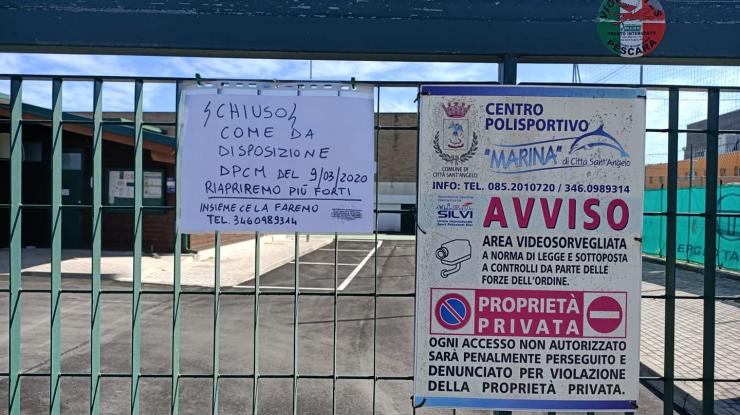 CHIUSO
COME DA
DISPOSIZIONE
DPCM DEL 9/03/2020
RIAPRIREMO PIÙ FORTI
INSIEME CE LA FAREMO
TEL. 3460989314
CENTRO
POLISPORTIVO
"MARINA" di Città Sant'Angelo
COMUNE DI
CITTÀ SANT'ANGELO
INFO: TEL. 085.2010720 / 346.0989314
SILVI
AVVISO
AREA VIDEOSORVEGLIATA
A NORMA DI LEGGE E SOTTOPOSTA
A CONTROLLI DA PARTE DELLE
FORZE DELL'ORDINE.
PROPRIETÀ
PRIVATA
OGNI ACCESSO NON AUTORIZZATO
SARÀ PENALMENTE PERSEGUITO E
DENUNCIATO PER VIOLAZIONE
DELLA PROPRIETÀ PRIVATA.
PESCARA